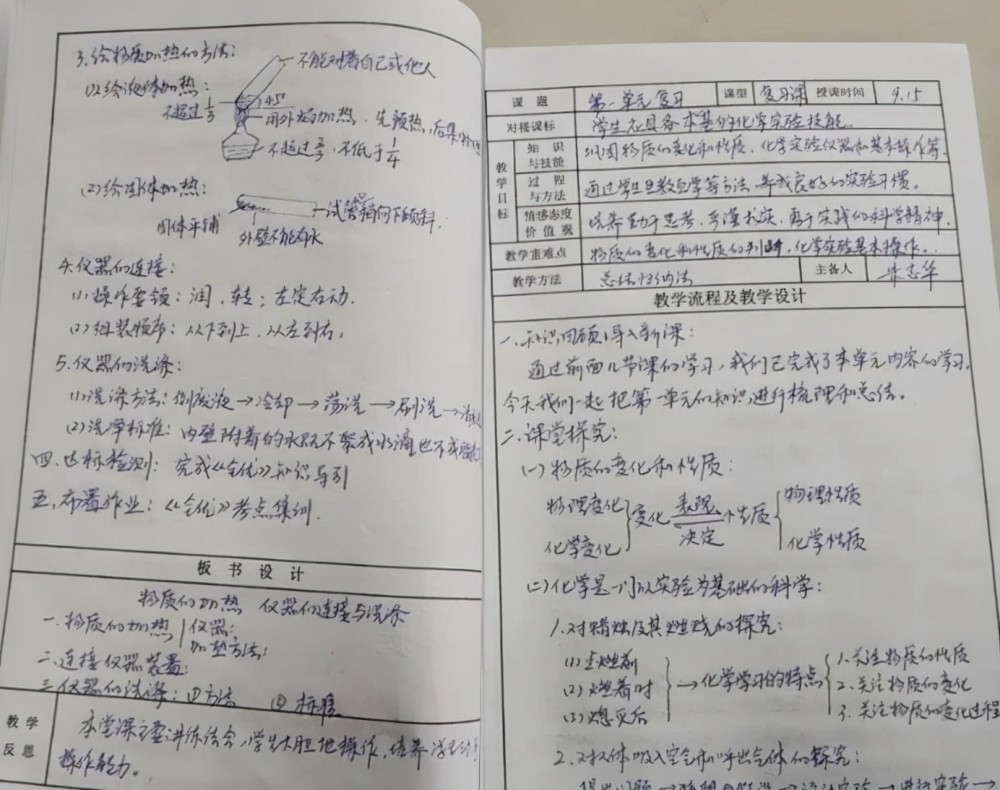 3.给物质加热的方法:
(1)给液体加热:
不能对着自己或他人
不超过1/3
45°
用外焰加热.先预热,后集中
不超过2/3,不低于1/4
(2)给固体加热:
固体平铺
试管稍向下倾斜.
外壁不能有水
4.仪器的连接:
(1)操作要领:润.转;左定右动.
(2)组装顺序:从下到上.从左到右.
5.仪器的洗涤:
(1)洗涤方法:倒废液→冷却→荡洗→刷洗→
(2)洗净标准:内壁附着的水既不聚成水滴也不成股
四.达标检测:完成《全优》知识导引
五.布置作业:《全优》考点集训.
板书设计
物质的加热 仪器的连接与洗涤
一.物质的加热 仪器:
加热方法:
二.连接仪器装置:
三.仪器的洗涤:①方法 ②标准
教学反思
本堂课主要讲练结合,学生大胆地操作,培养学生动手
操作能力。
课题 第一单元复习 课型 复习课 授课时间 9.15
对接课标 学生应具备基本的化学实验技能。
教学目标
知识与技能 巩固物质的变化和性质,化学实验仪器和基本操作等.
过程与方法 通过学生思教自学等方法,养成良好的实验习惯。
情感态度价值观 培养勤于思考,严谨求实,勇于实践的科学精神.
教学重难点 物质的变化和性质的判断,化学实验基本操作.
教学方法 总结归纳法 主备人
教学流程及教学设计
一.知识回顾,导入新课:
通过前面几节课的学习,我们已完成了本单元内容的学习.
今天我们一起把第一单元的知识进行梳理和总结。
二.课堂探究:
(一)物质的变化和性质:
物理变化
化学变化
变化 表现 决定 性质
物理性质
化学性质
(二)化学是一门以实验为基础的科学:
1.对蜡烛及其燃烧的探究:
(1)点燃前
(2)燃着时
(3)熄灭后
→化学学习的特点
1.关注物质的性质
2.关注物质的变化
3.关注物质的变化过程
2.对人体吸入空气和呼出气体的探究:
提出问题→猜想与假设→设计实验→进行实验→